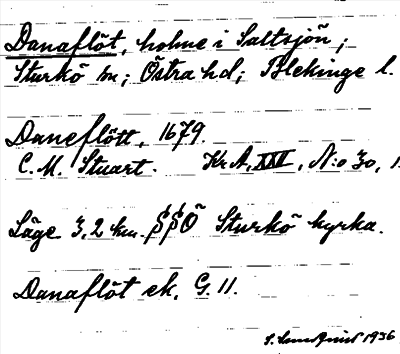 Danaflöt, holme i Saltsjön;
Sturkö sn; Östra hd; Blekinge l.
Daneflött, 1679.
C. M. Stuart. Kr A, XXV, N:o 30, 1.
Läge 3,2 km. SSÖ Sturkö kyrka.
Danaflöt ek. G. 11.
1936